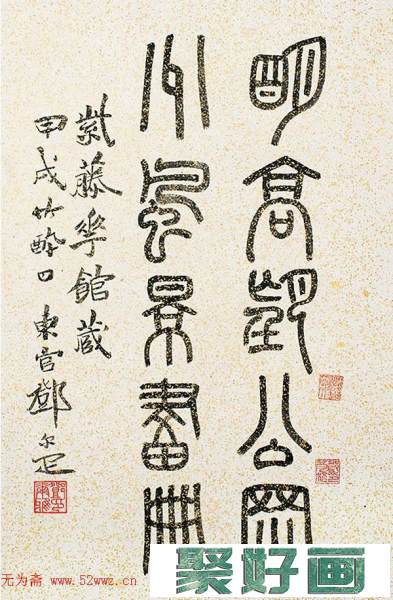 明高望公
風景畫冊
紫藤華館藏
甲戌竹醉日 東官鄧尔疋
无为斋 www.52wwz.cn
聚好画